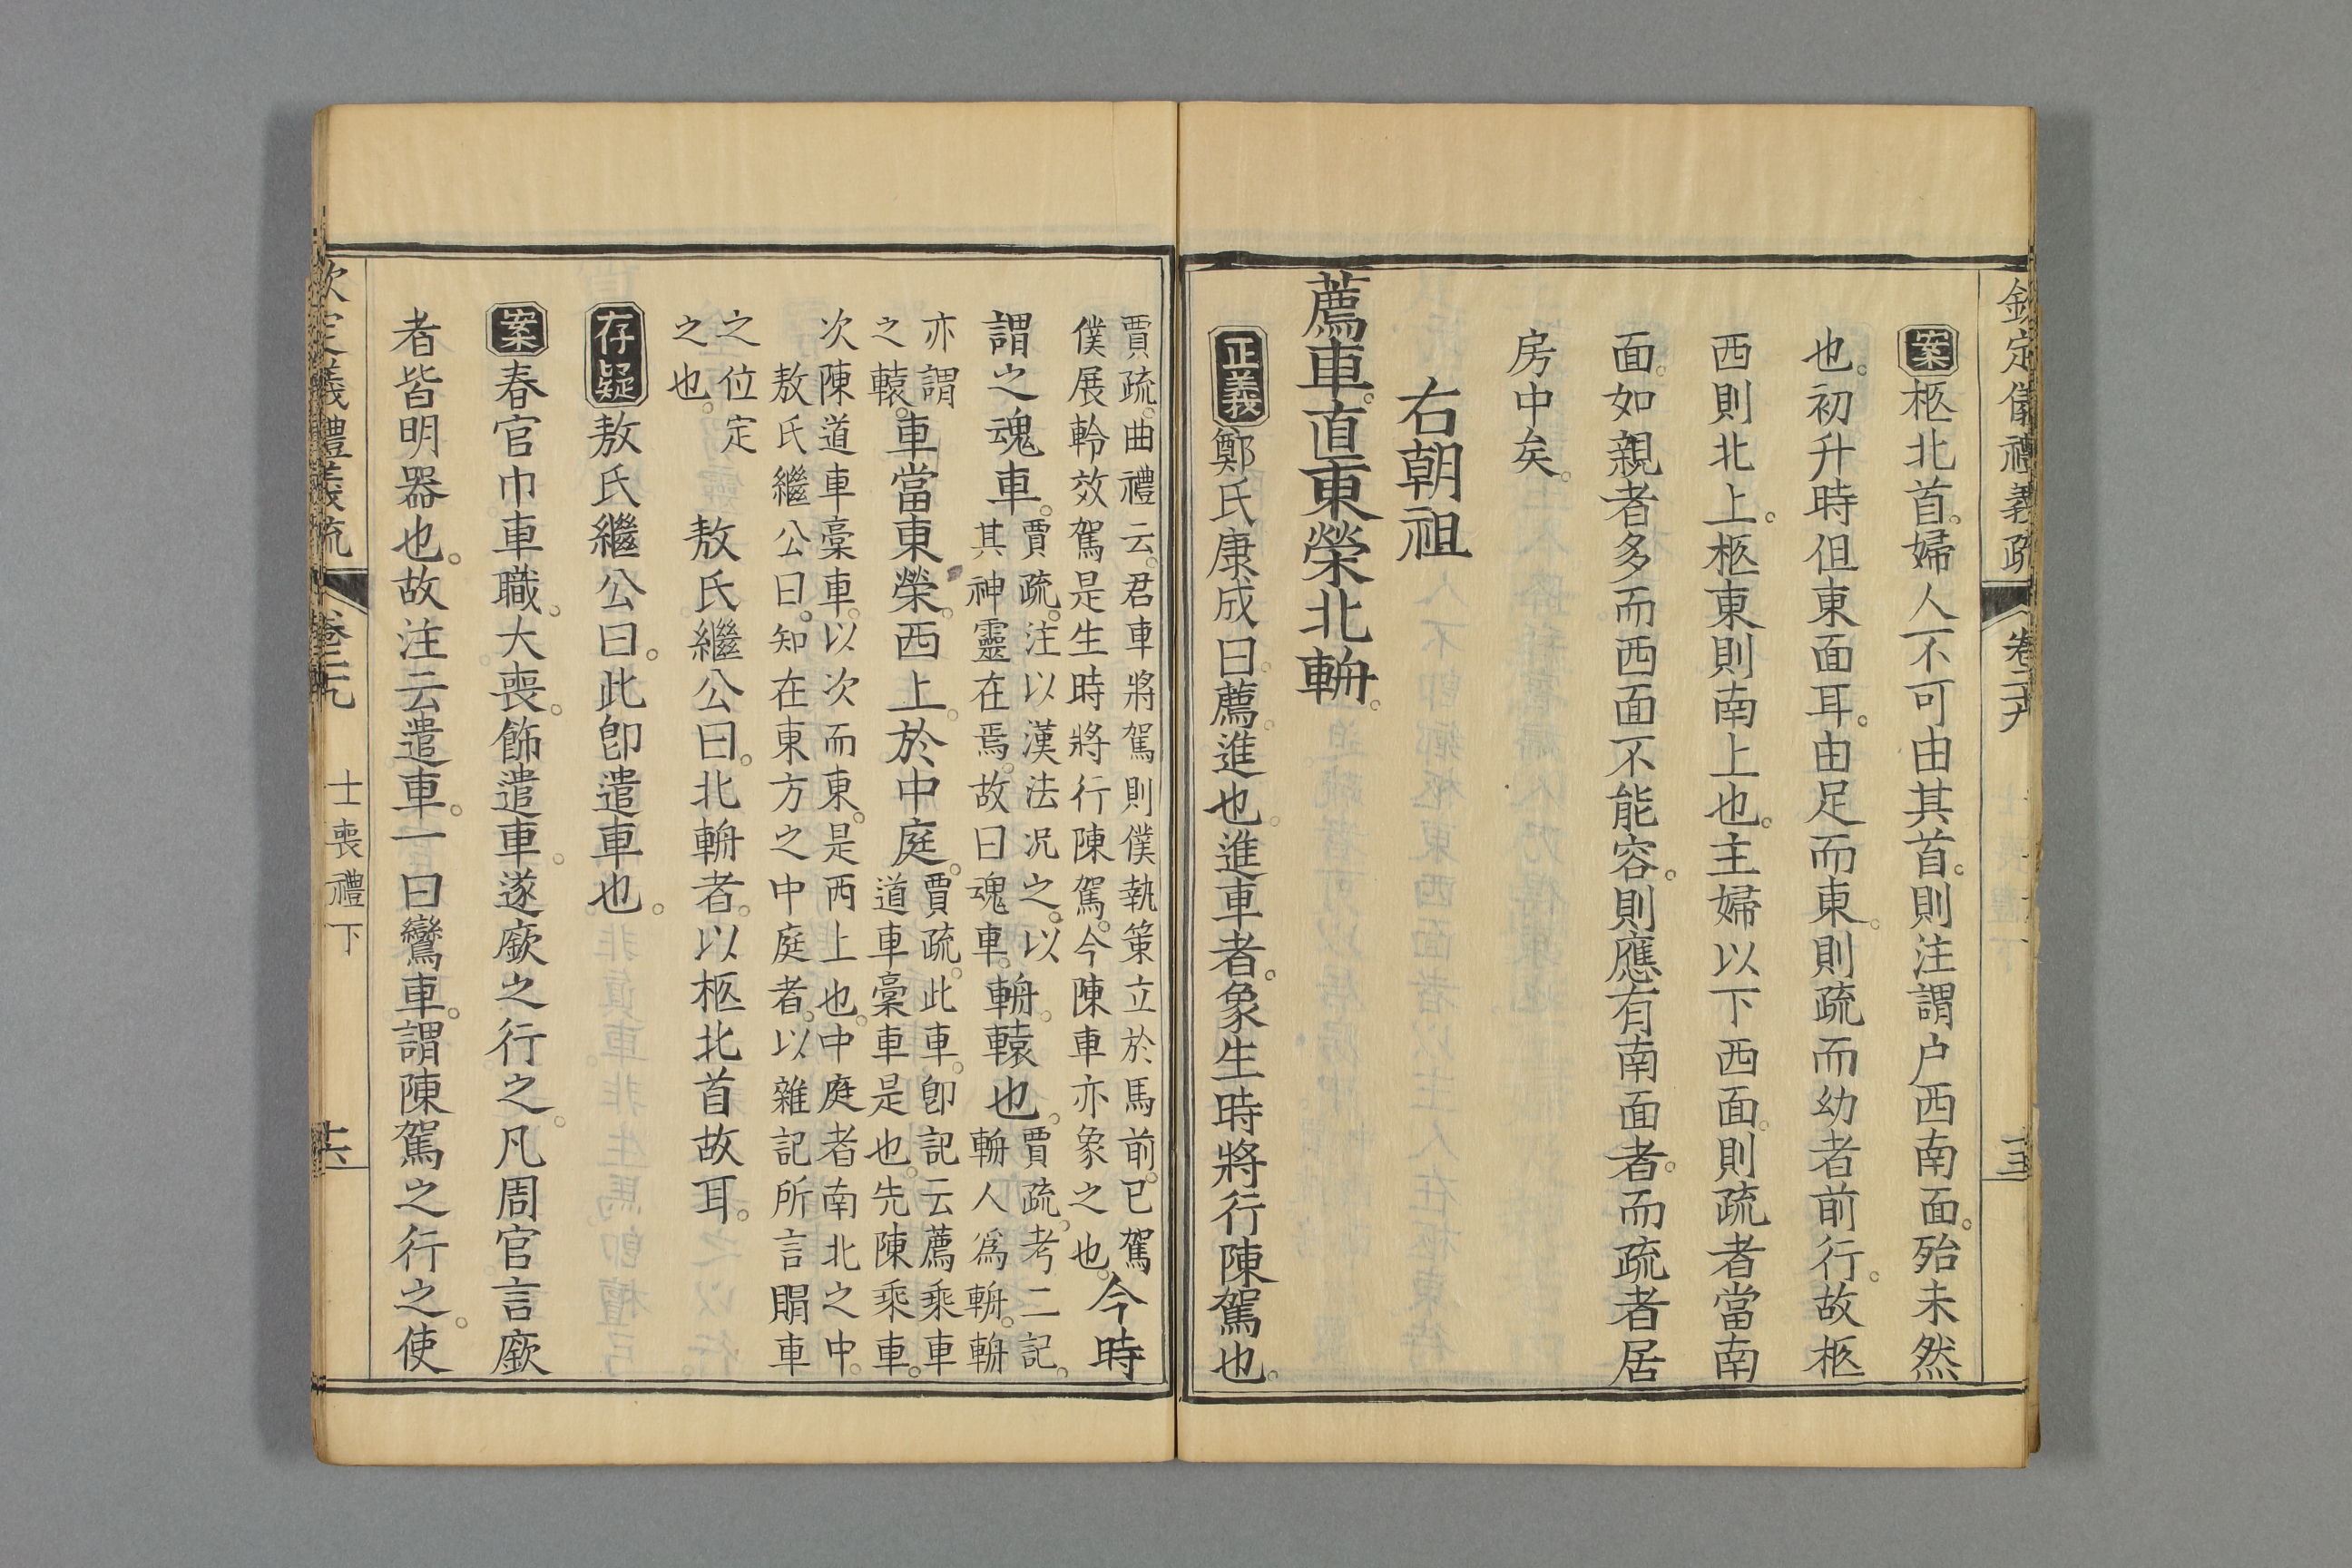 欽定儀禮義疏 卷二十九 十三
案柩北首。婦人不可由其首。則注謂户西南面。殆未然
也。初升時但東面耳。由足而東。則疏而幼者前行。故柩
西則北上。柩東則南上也。主婦以下西面。則疏者當南
面。如親者多而西面不能容。則應有南面者。而疏者居
房中矣。
右朝祖
薦車。直東榮北輈。
正義鄭氏康成曰。薦。進也。進車者。象生時將行陳駕也。
賈疏。曲禮云。君車將駕則僕執策立於馬前。已駕
僕展軨效駕是生時將行陳駕。今陳車亦象之也。今時
謂之魂車。
賈疏。注以漢法况之。以
其神靈在焉。故曰魂車。
輈。轅也。
賈疏。考二記。
輈人爲輈。輈
亦謂
之轅。
車當東榮。西上。於中庭。
賈疏。此車。卽記云薦乘車
道車稾車是也。先陳乘車。
次陳道車稾車。以次而東。是西上也。中庭者南北之中。
敖氏繼公曰。知在東方之中庭者。以雜記所言賵車
之位定
之也。
敖氏繼公曰。北輈者。以柩北首故耳。
存疑敖氏繼公曰。此卽遣車也。
案春官巾車職。大喪。飾遣車。遂廞之行之。凡周官言廞
者皆明器也。故注云遣車。一曰鸞車。謂陳駕之行之。使
欽定儀禮義疏 卷二十九 士喪禮下 十六